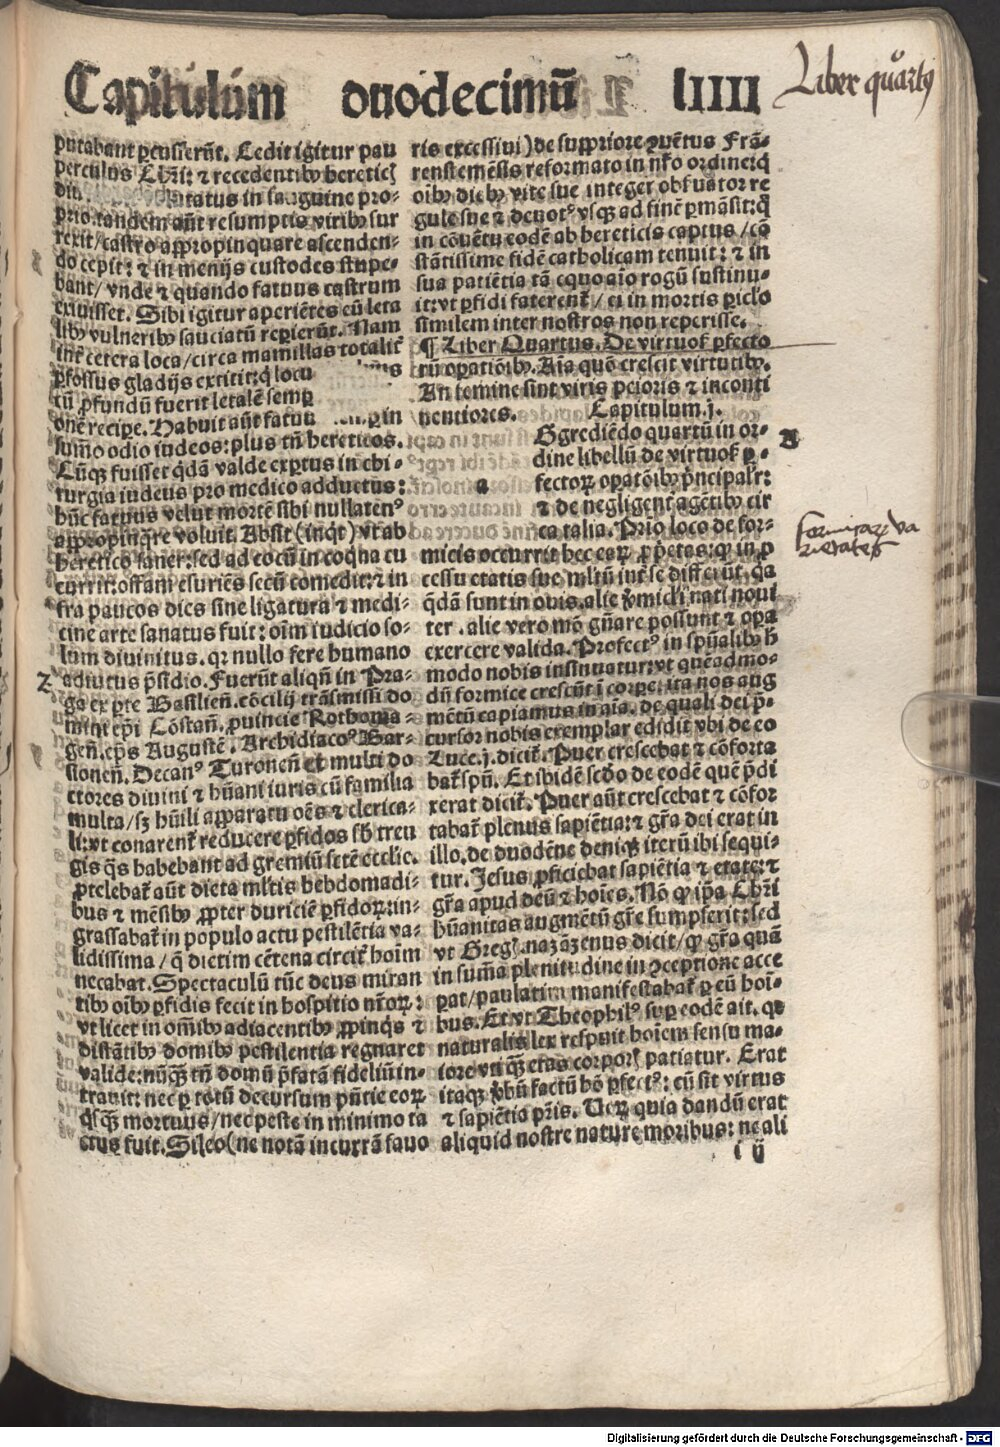 Capitulum duodecimū LIIII
Liber quartꝰ
putabant ꝑcusserūt. Cedit igitur pau
perculus Chr̄i: ⁊ recedentibꝫ heretic̄
diu. in sanguine pro-
prio. tandem aūt resumptis viribꝫ sur
rexit/castro appropinquare ascenden-
do cepit: ⁊ in menijs custodes stupe-
bant/vnde ⁊ quando fatuus castrum
exiuisset. Sibi igitur aperiētes cū leta
libꝫ vulneribꝫ sauciatū reꝑierūt. Nam
int̄ cetera loca/circa mamillas totalit̄
ꝑfossus gladijs extitit: q̄ locu
tū ꝓfundū fuerit letalē semꝑ
onē recipe. Habuit aūt fatuu in
sūmo odio iudeos: plus tn̄ hereticos.
Cūqꝫ fuisset q̄dā valde exꝑtus in chi-
rurgia iudeus pro medico adductus:
hūc fatuus velut mortē sibi nullatenꝰ
appropinq̄re voluit. Absit (inq̄t) vt ab
heretico saner: sed ad cocū in coq̄na cu
currit: offam esuriēs secū comedit: ⁊ in
fra paucos dies sine ligatura ⁊ medi-
cine arte sanatus fuit: oīm iudicio so-
lum diuinitus. qꝛ nullo fere humano
Z adiutus p̄sidio. Fuerūt aliqn̄ in Pra-
ga ex ꝑte Basilien̄. cōcilij trāsmissi do
mini ep̄i Cōstan̄. ꝓuincie Rothoma-
gen̄. ep̄s Augustē. Archidiacoꝰ Bar-
sionen̄. Decanꝰ Turonen̄ et multi do
ctores diuini ⁊ hūani iuris cū familia
multa/sꝫ hūili apparatu oēs ⁊ clerica-
li: vt conarent̄ reducere ꝑfidos sb̄ treu
gis q̄s habebant ad gremiū scte ecclie.
Protelebat̄ aūt dieta ml̄tis hebdomadi-
bus ⁊ mēsibꝫ ꝓpter duriciē ꝑfidoꝝ: in-
grassabat̄ in populo actu pestilētia va-
lidissima/q̄ dietim cētena circit̄ hoīm
necabat. Spectaculū tūc deus miran
tibꝫ oībꝫ ꝑfidis fecit in hospitio nr̄oꝝ:
vt licet in om̄ibꝫ adiacentibꝫ ꝓpinq̄s ⁊
distātibꝫ domibꝫ pestilentia regnaret
valide: nūq̄ꝫ tn̄ domū p̄fatā fideliū in-
trauit: nec ꝑ totū decursum pn̄tie eoꝝ
q̄sq̄ꝫ mortuus/nec peste in minimo ta
ctus fuit. Sileo (ne notā incurrā fauo
ris excessiui) de suppriore ꝯuētus Frā-
renstemēsis reformato in nr̄o ordine: q̄
oībꝫ diebꝫ vite sue integer obseruator re
gule sue ⁊ deuotꝰ vsqꝫ ad finē ꝑmāsit: q̄
in cōuētu eodē ab hereticis captus/cō
stātissime fidē catholicam tenuit: ⁊ in
sua patiētia tā equo aīo rogū sustinu-
it: vt ꝑfidi faterent̄/ei in mortis ꝑicl'o
similem inter nostros non reperisse.
¶ Liber Quartus. De virtuoſ ꝑfecto
rū oꝑatiōibꝫ. Aīa quō crescit virtutibꝫ.
An femine sint viris peioris ⁊ inconti
nentiores. Capitulum.j.
a
Ggrediēdo quartū in or- A
dine libellū de virtuoſ ꝑ-
fectoꝝ oꝑatōibꝫ p̄ncipalr̄:
⁊ de negligent̄ agētibꝫ cir
ca talia. Prīo loco de for-
micis occurrit hec eaꝝ ꝓp̄etas: qꝫ in ꝓ
cessu etatis sue ml̄tū int̄ se differūt. q̄a
q̄dā sunt in ouis. alie v̄micl'i nati noui
ter. alie vero mō gn̄are possunt ⁊ opa
exercere valida. Profectꝰ in spūalibꝫ h̄
modo nobis insinuatur: vt quēadmo-
dū formice crescūt ī corpe: ita nos aug
mētū capiamus in aīa. de quali dei p̄-
cursor nobis exemplar edidit vbi de eo
Luce.j. dicit̄. Puer crescebat ⁊ cōforta
bat̄ spū. Et ibidē scd̄o de eodē quē p̄di
xerat dicit̄. Puer aūt crescebat ⁊ cōfor
tabat̄ plenus sapiētia: ⁊ gr̄a dei erat in
illo. de duodēne deniqꝫ iterū ibi sequi-
tur. Jesus ꝓficiebat sapiētia ⁊ etate: ⁊
gr̄a apud deū ⁊ hoīes. Nō qꝫ ip̄a Chr̄i
hūanitas augmētū gr̄e sumpserit: sed
vt Greg. nazāzenus dicit/qꝫ gr̄a quā
in sum̄a plenitudine in ꝯceptione acce
ꝑat/paulatim manifestabat̄ ꝑ eū hoī-
bus. Et vt Theophilꝰ suꝑ eodē ait. qꝛ
naturalis lex respuit hoīem sensu ma-
iore vti q̄ꝫ etas corporꝭ patiatur. Erat
itaqꝫ v̄bū factū hō ꝑfectꝰ: cū sit virtus
⁊ sapiētia pr̄is. Ueꝝ quia dandū erat
aliquid nostre nature moribus: ne ali
i ij
formicarum va
rietates
Digitalisierung gefördert durch die Deutsche Forschungsgemeinschaft - DFG